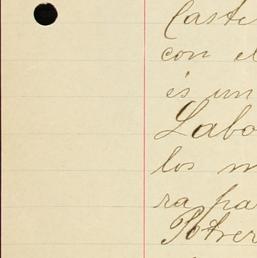 Caste
con el
és un
Labo
los m
ra pa
Potrer